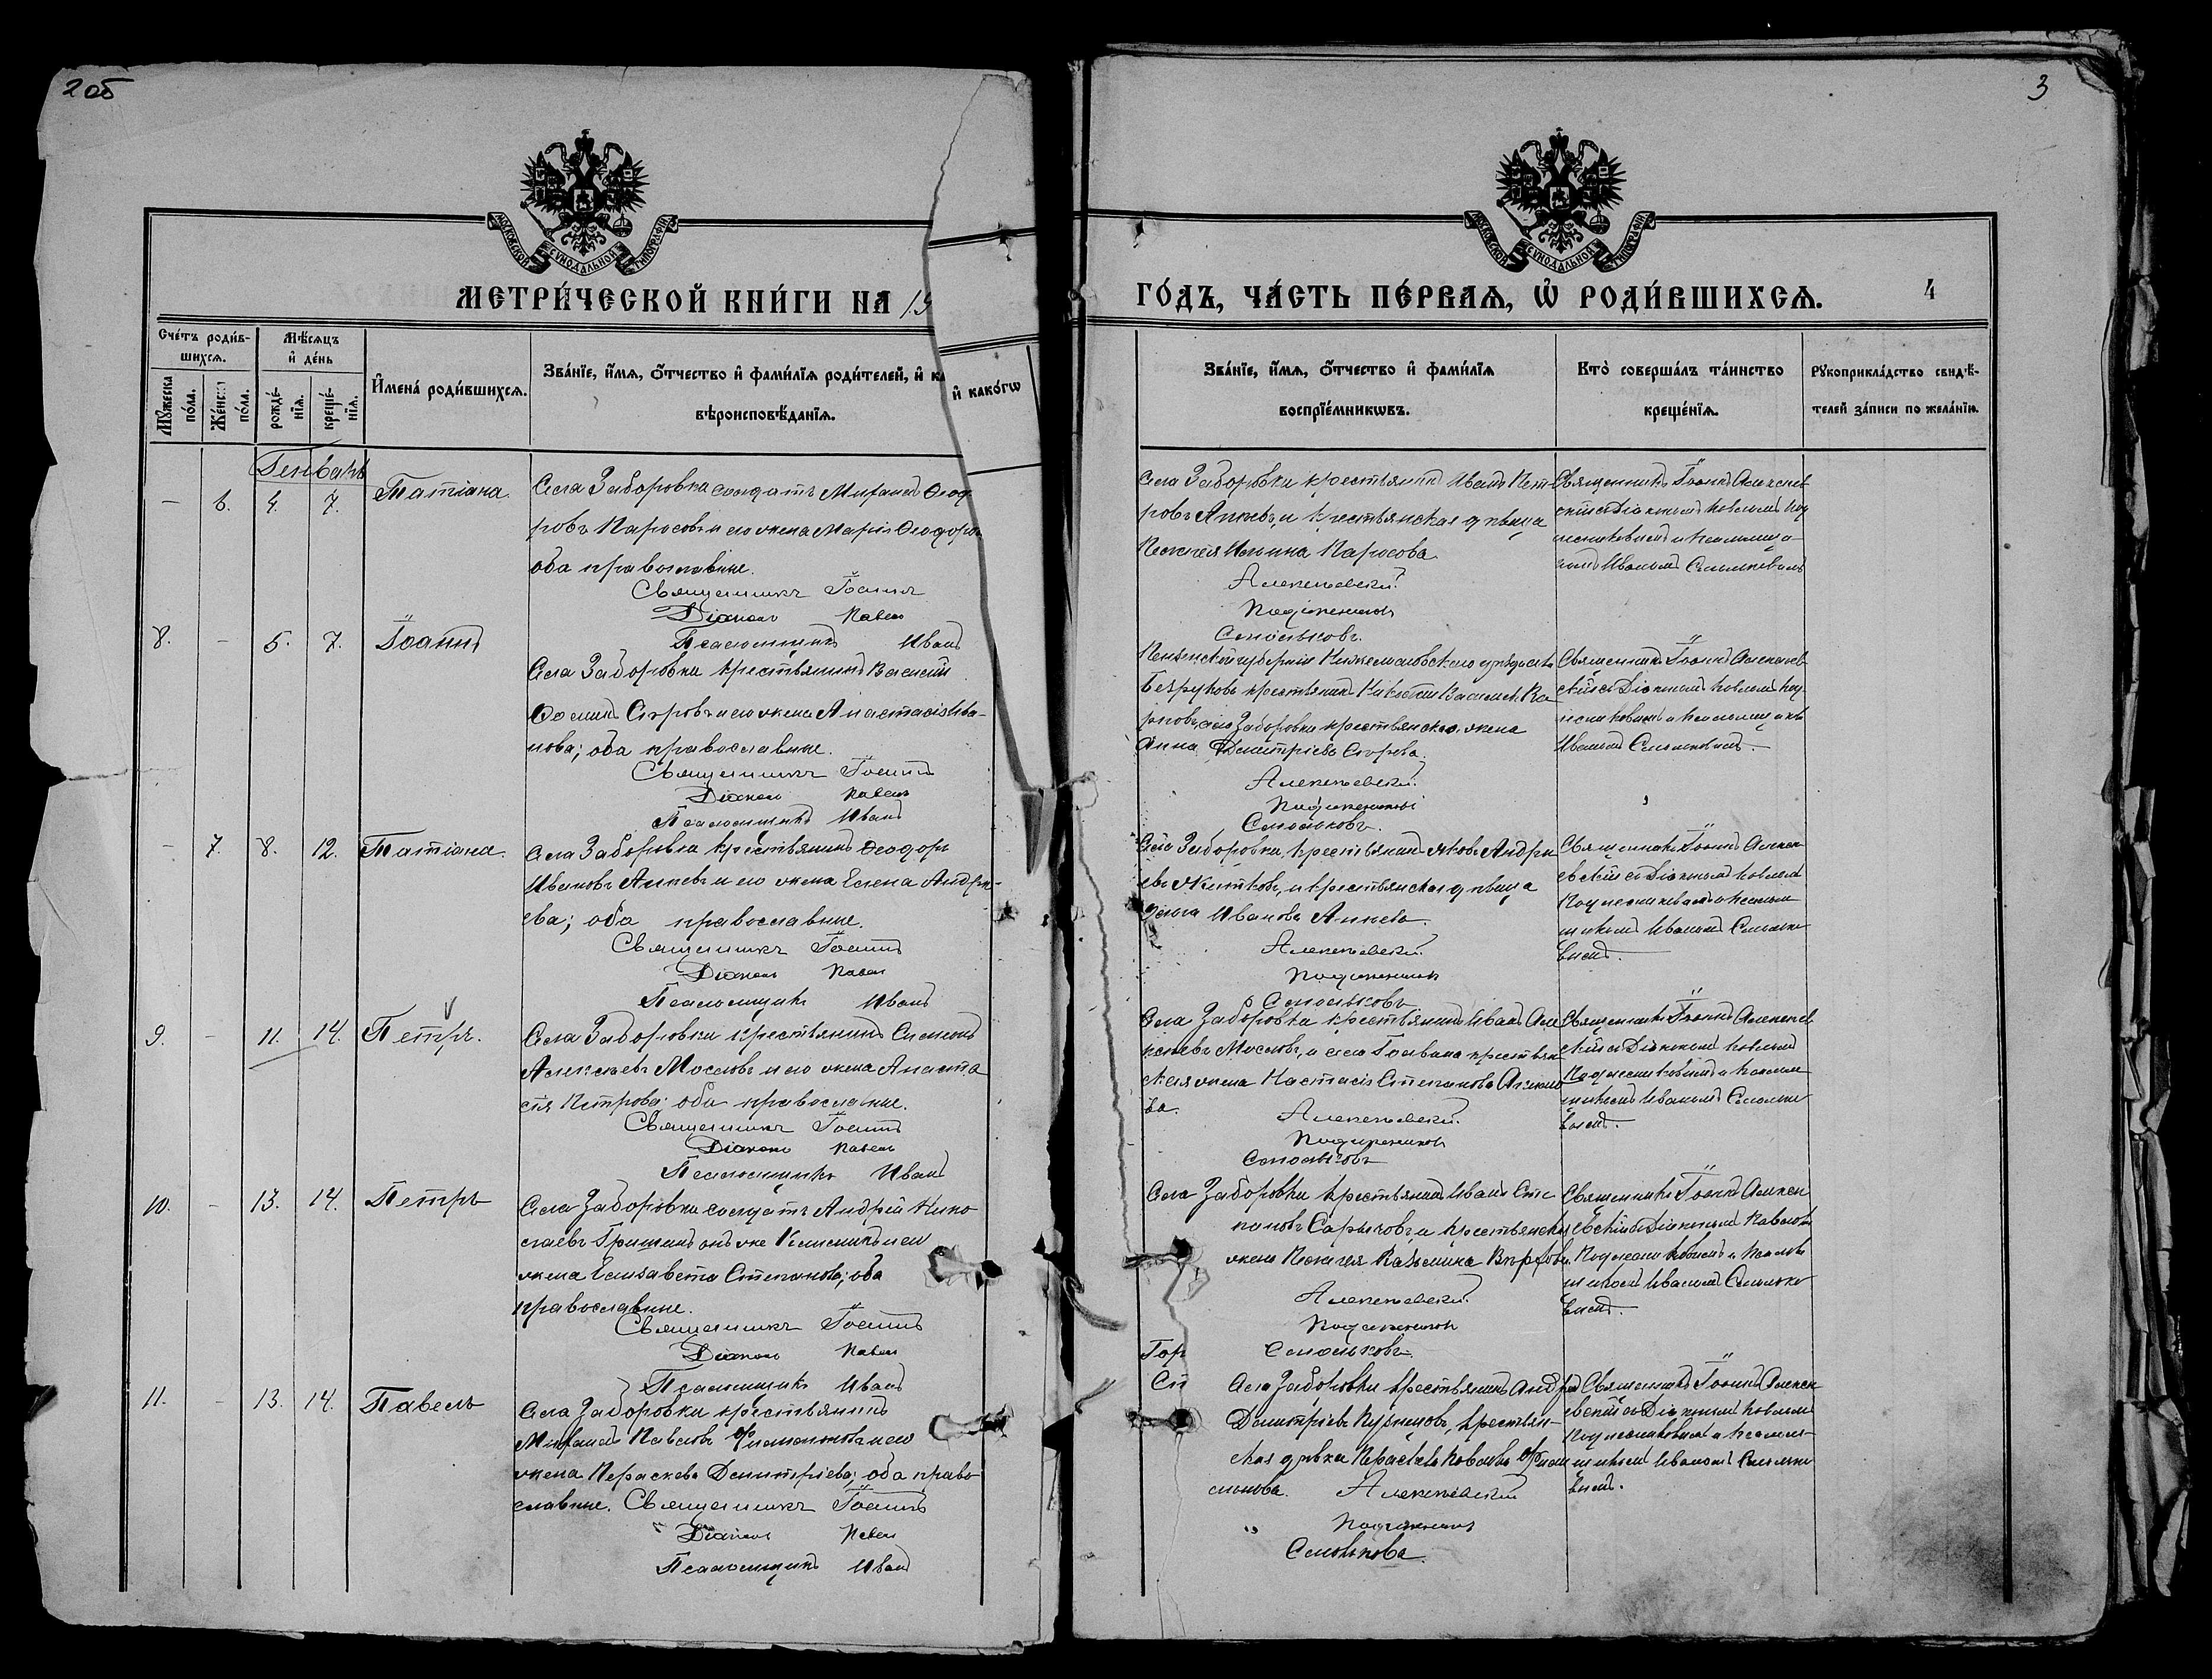 2 об
3
МОСКОВСКОЙ СѴНОДАЛЬНОЙ ТИПОГРАФІИ
МОСКОВСКОЙ СѴНОДАЛЬНОЙ ТИПОГРАФІИ
МЕТРИ́ЧЕСКОЙ КНИ́ГИ НА 19
ГО́ДЪ, ЧА́СТЬ ПЕ́РВАѦ, Ѡ҆ РОДИ́ВШИХСѦ.
4
Сче́тъ роди́в-
шихсѧ.
Мꙋ́жеска
по́ла.
Же́нска
по́ла.
Мѣ́сѧцъ
и҆ де́нь
рожде́-
нїѧ.
креще́-
нїѧ.
И҆мена̀ роди́вшихсѧ.
Зва́нїе, и҆́мѧ, ѻ҆́тчество и҆ фамѝлїѧ роди́телей, и҆ ка
и҆ како́гѡ
вѣроисповѣ́данїѧ.
Зва́нїе, и҆́мѧ, ѻ҆́тчество и҆ фамѝлїѧ
воспрїе́мникѡвъ.
Кто̀ соверша́лъ та́инство
креще́нїѧ.
Рꙋкоприкла́дство свидѣ́-
телей за́писи по жела́нїю.
Генварь
— 6. 4. 7. Татіана.
Села Заборовка солдатъ Михаилъ Ѳеод
ровъ Паросовъ и его жена Марія Ѳеодоро
оба православные.
Священникъ Іоаннъ
Діаконъ Павелъ
Псаломщикъ Иванъ
Села Заборовки крестьянинъ Иванъ Пет-
ровъ Апкевъ и крестьянская дѣвица
Пелагея Ильина Паросова.
Алексѣевскій
Подлесниковъ
Смольковъ.
Священникъ Іоаннъ Алексѣев
скій съ Діакономъ Павломъ Под
лесниковымъ и псаломщи-
комъ Иваномъ Смольковымъ
8. — 5. 7. Іоаннъ
Села Заборовки крестьянинъ Василій
Ѳоминъ Егоровъ и его жена Анастасія Ива-
нова; оба православные.
Священникъ Іоаннъ
Діаконъ Павелъ
Псаломщикъ Иванъ
Пензенской губерніи Нижнеломовскаго уѣзда села
крестьянинъ Василіевъ
села Заборовки крестьянская жена
Анна Димитріева Егорова.
Алексѣевскій.
Подлесниковъ
Смольковъ.
Священникъ Іоаннъ Алексѣев
скій съ Діакономъ Павломъ Под
лесниковымъ и псаломщикомъ
Иваномъ Смольковымъ.
— 7. 8. 12. Татіана.
Села Заборовки крестьянинъ Ѳеодоръ
Ивановъ Апкевъ и его жена Елена Андре-
ева; оба православные.
Священникъ Іоаннъ
Діаконъ Павелъ
Псаломщикъ Иванъ
Села Заборовки, крестьянинъ Яковъ Андре
евъ Житковъ, и крестьянская дѣвица
Иванова Апкева.
Алексѣевскій.
Подлесниковъ
Смольковъ
Священникъ Іоаннъ Алексѣ
евскій съ Діакономъ Павломъ
Подлесниковымъ и псалом
щикомъ Иваномъ Смолько
вымъ.
9. — 11. 14. Петръ.
Села Заборовки крестьянинъ Симеонъ
Алексѣевъ Масловъ и его жена Анаста
сія Петрова; оба православные.
Священникъ Іоаннъ
Діаконъ Павелъ
Псаломщикъ Иванъ
Села Заборовки крестьянинъ Иванъ Але
ксѣевъ Масловъ, и села Голвина крестьян
ская жена Настасія Степанова
ва.
Алексѣевскій.
Подлесниковъ
Смольковъ
Священникъ Іоаннъ Алексѣев
скій съ Діакономъ Павломъ
Подлесниковымъ и псалом
щикомъ Иваномъ Смолько
вымъ.
10. — 13. 14. Петръ
Села Заборовки солдатъ Андрей Нико
лаевъ Гришинъ онъ же и его
жена Елизавета Степанова; оба
православные.
Священникъ Іоаннъ
Діаконъ Павелъ
Псаломщикъ Иванъ
Села Заборовки крестьянинъ Иванъ Сте
пановъ Сарычовъ, и крестьянская
жена Пелагея Казьмина
Алексѣевскій.
Подлесниковъ
Гор
Смольковъ.
Священникъ Іоаннъ Алексѣ
евскій съ Діакономъ Павломъ
Подлесниковымъ и псалом
щикомъ Иваномъ Смолько
вымъ.
11. — 13. 14. Павелъ
Села Заборовки крестьянинъ
Михаилъ Павловъ Филимоновъ и его
жена Параскева Димитріева; оба право-
славные. Священникъ Іоаннъ
Діаконъ Павелъ
Псаломщикъ Иванъ
Сп
Села Заборовки крестьянинъ Андрей
Димитріевъ Кузнецовъ, крестьян-
ская дѣвка Параскева Павлова Фили
монова. Алексѣевскій
Подлесниковъ
Смолькова.
Священникъ Іоаннъ Алексѣ
евскій съ Діакономъ Павломъ
Подлесниковымъ и псалом-
щикомъ Иваномъ Смолько
вымъ.